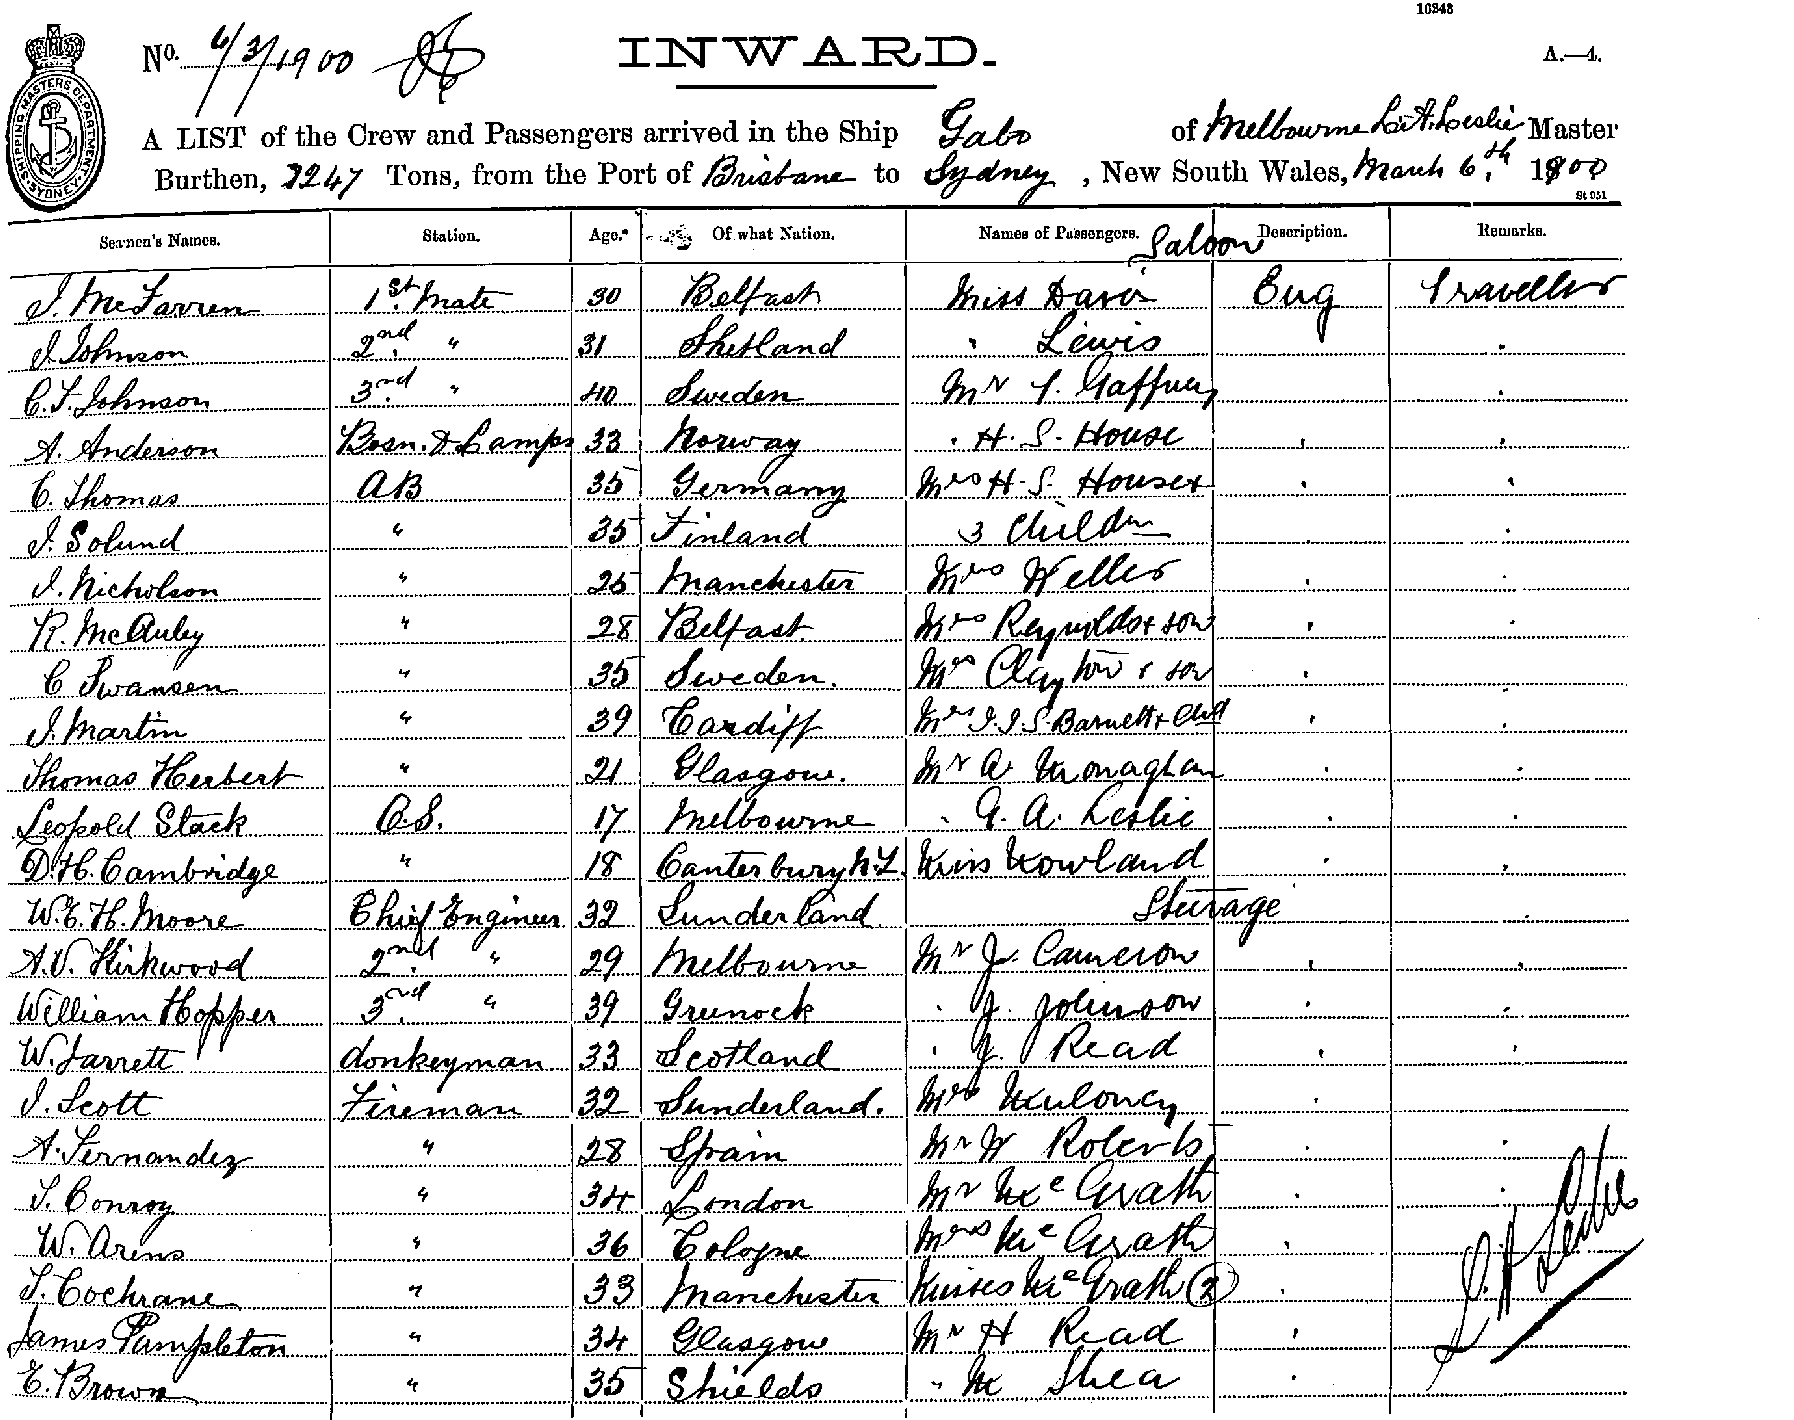 10248
No. 6/3/1900
INWARD.
A.—4.
SHIPPING MASTERS DEPARTMENT SYDNEY
A LIST of the Crew and Passengers arrived in the Ship Gabo of Melbourne L. A. Leslie Master
Burthen, 2247 Tons, from the Port of Brisbane to Sydney, New South Wales, March 6th. 1900
St 951
Seamen's Names. Station. Age. Of what Nation. Names of Passengers. Description. Remarks.
Saloon
J. McFarren 1st. Mate 30 Belfast Miss Davis Eng Traveller
J. Johnson 2nd. " 31 Shetland " Lewis "
C. F. Johnson 3rd. " 40 Sweden Mr T. Gaffney "
A. Anderson Bosn. & Lamps 33 Norway " H. S. House " "
C. Thomas AB 35 Germany Mrs H. S. House + " "
J. Solund " 35 Finland 3 Children "
J. Nicholson " 25 Manchester Mrs Weller " "
R. McAuley " 28 Belfast. Mrs Reynolds + son " "
C Swansen " 35 Sweden. Mrs Clayton & son " "
J. Martin " 39 Cardiff Mrs J. J. S. Barnett + Child " "
Thomas Herbert " 21 Glasgow. Mr A Monaghan " "
Leopold Stack O.S. 17 Melbourne " G. A. Leslie " "
D. H. Cambridge " 18 Canterbury N.Z. Miss Rowland " "
W. E. H. Moore Chief Engineer 32 Sunderland Steerage "
A. V. Kirkwood 2nd. " 29 Melbourne Mr J. Cameron " "
William Hopper 3rd. " 39 Greenock " J. Johnson " "
W. Jarrett donkeyman 33 Scotland " J. Read " "
J. Scott Fireman 32 Sunderland. Mrs Muloney "
A. Fernandez " 28 Spain Mr W Roberts "
T. Conroy " 34 London Mr McGrath " "
W. Arens " 36 Cologne Mrs McGrath "
T. Cochrane " 33 Manchester Misses McGrath (2) "
James Pampleton " 34 Glasgow Mr H Read "
E. Brown " 35 Shields " M Shea "
L. A. Leslie